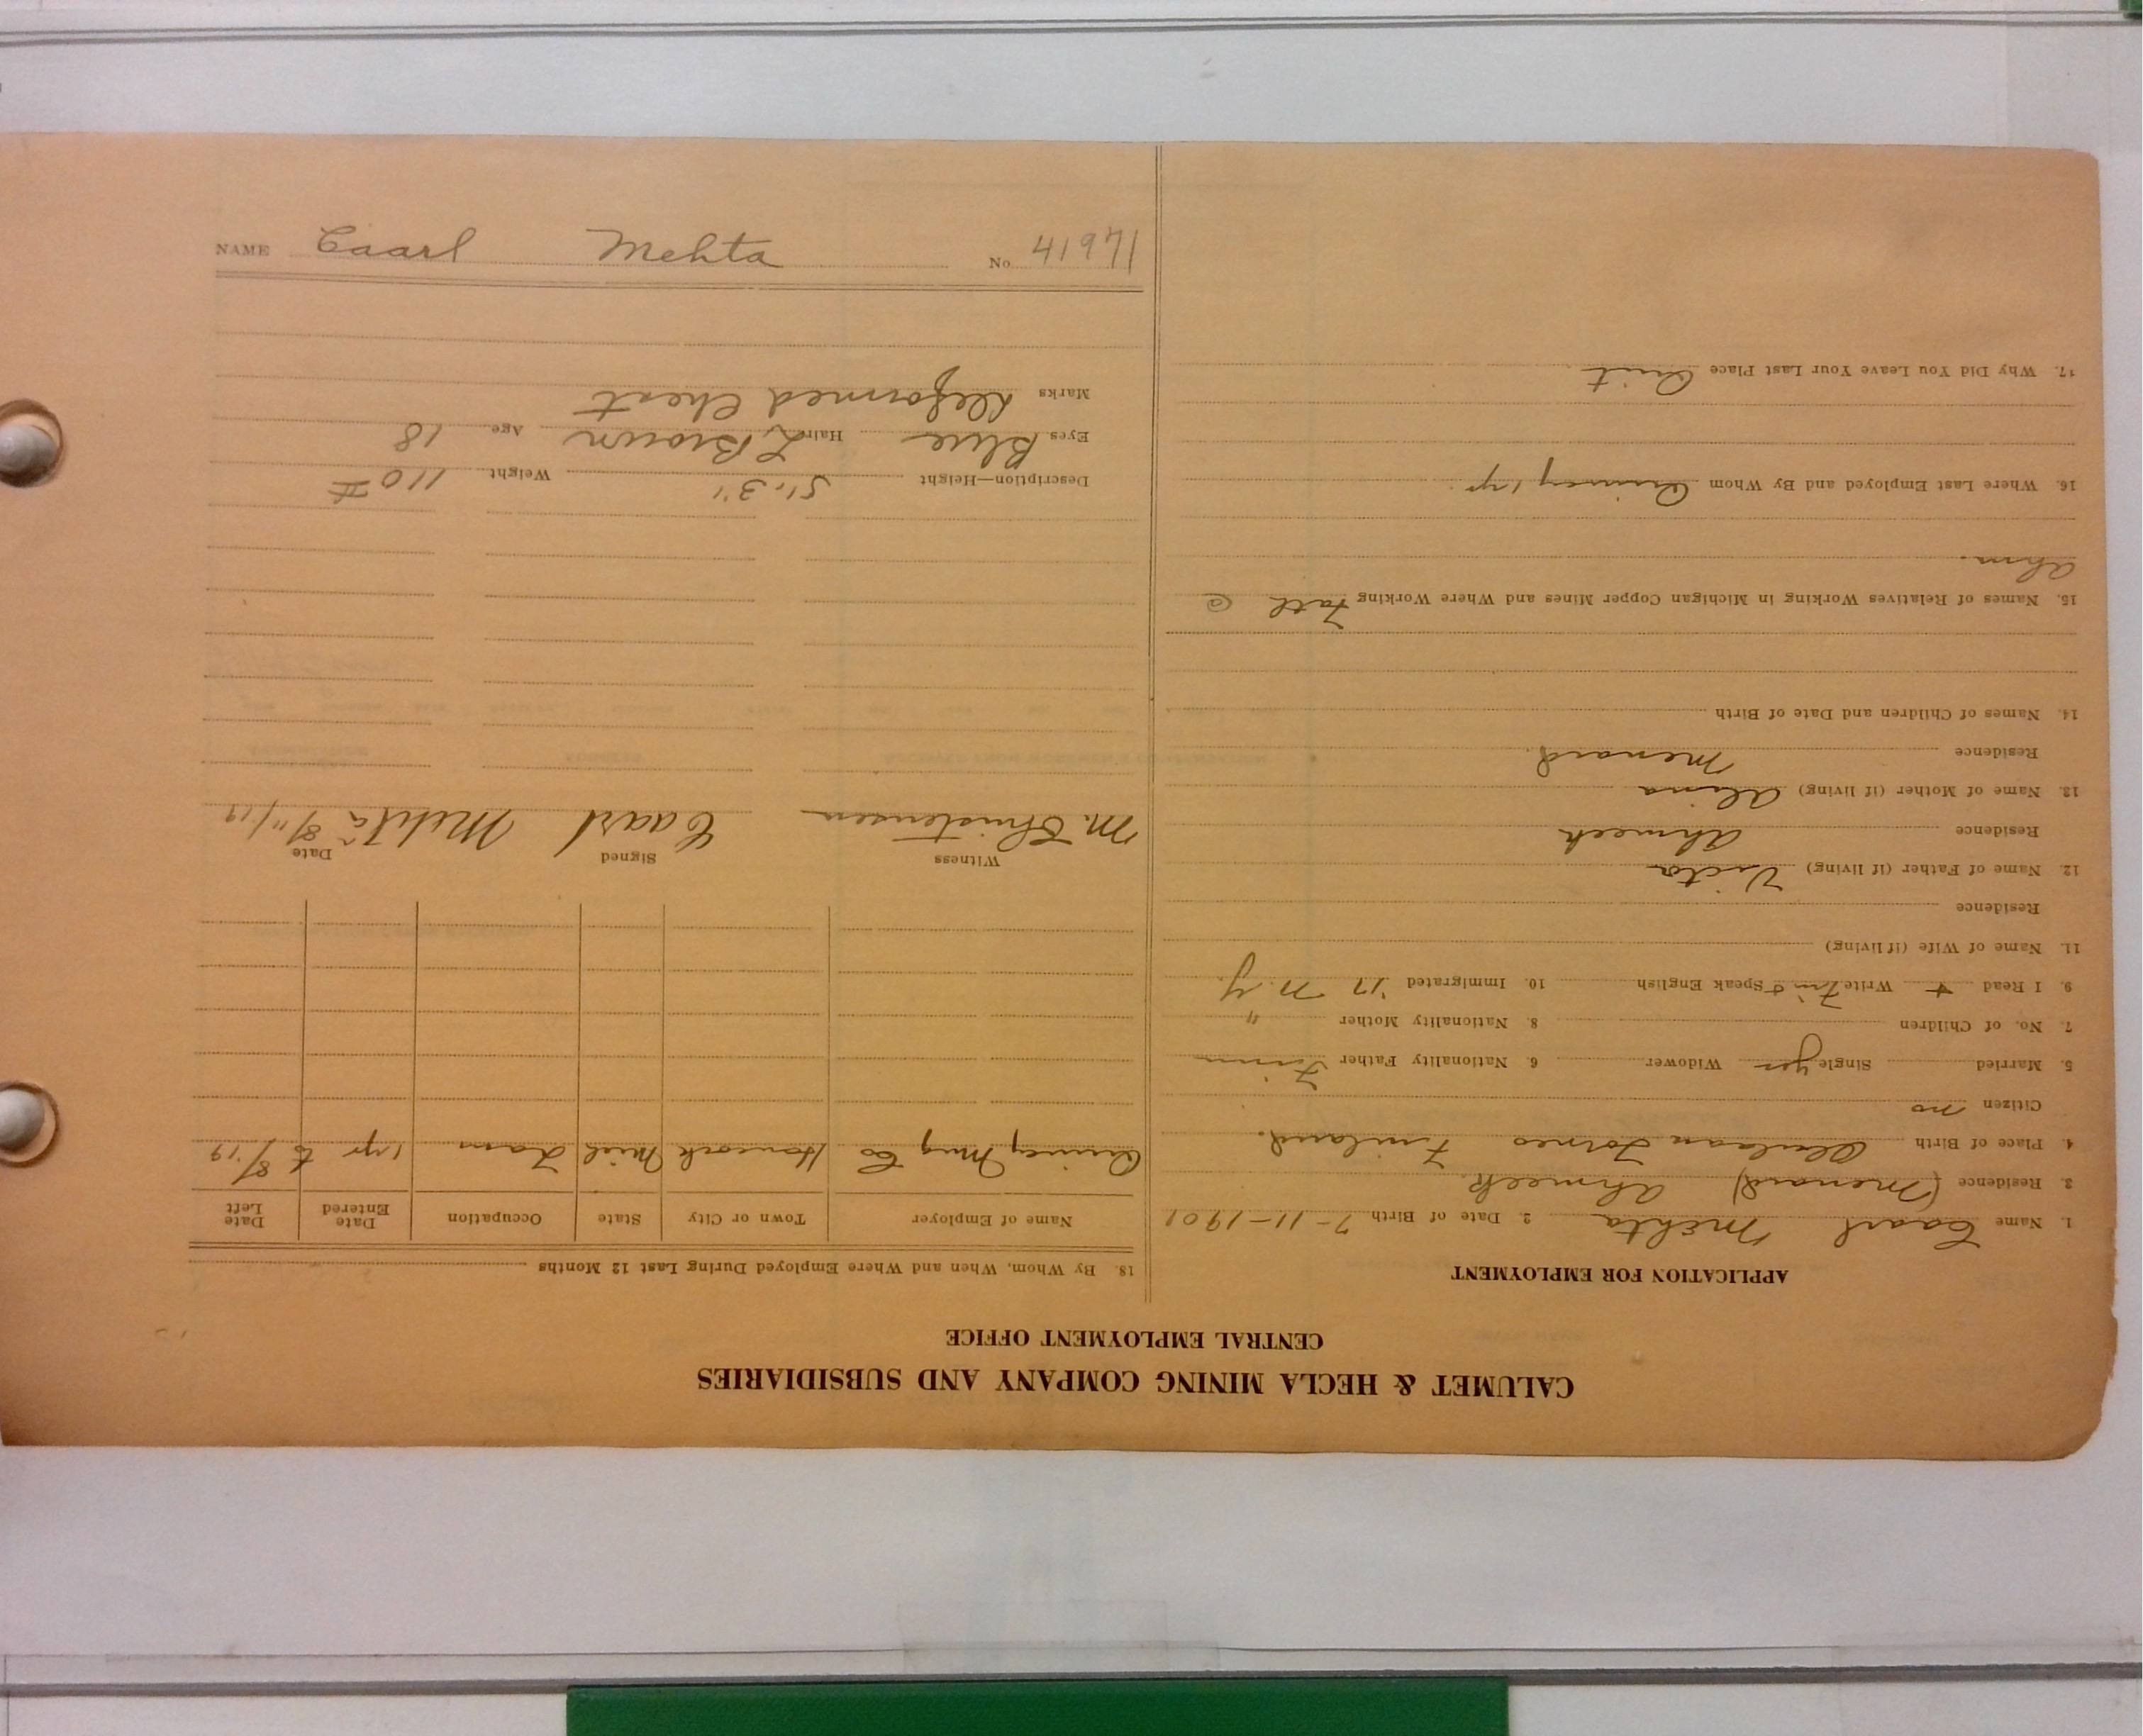 CALUMET & HECLA MINING COMPANY AND SUBSIDIARIES
CENTRAL EMPLOYMENT OFFICE
APPLICATION FOR EMPLOYMENT
1. Name Caarl Mehta 2. Date of Birth 7-11-1901
3. Residence (Menard) Ahmeek
4. Place of Birth Torneo Finland.
Citizen no
5. Married Single yes Widower 6. Nationality Father Finn
7. No. of Children 8. Nationality Mother "
9. I Read + Write Finn Speak English 10. Immigrated '17 N.Y.
11. Name of Wife (if living)
Residence
12. Name of Father (if living) Victor
Residence Ahmeek
13. Name of Mother (if living) Alina
Residence Menard.
14. Names of Children and Date of Birth
15. Names of Relatives Working in Michigan Copper Mines and Where Working Fath @
Ahm.
16. Where Last Employed and By Whom Quincy 1 yr.
17. Why Did You Leave Your Last Place Quit
18. By Whom, When and Where Employed During Last 12 Months
Name of Employer Town or City State Occupation Date Entered Date Left
Quincy Mng Co Hancock Mich Tram 1 yr to 8/'19
Witness Signed Date
M. Christensen Caarl Mehta 8/11/19
Description—Height 5'..3" Weight 110 #
Eyes Blue Hair L Brown Age 18
Marks Deformed Chest
NAME Caarl Mehta No. 41971